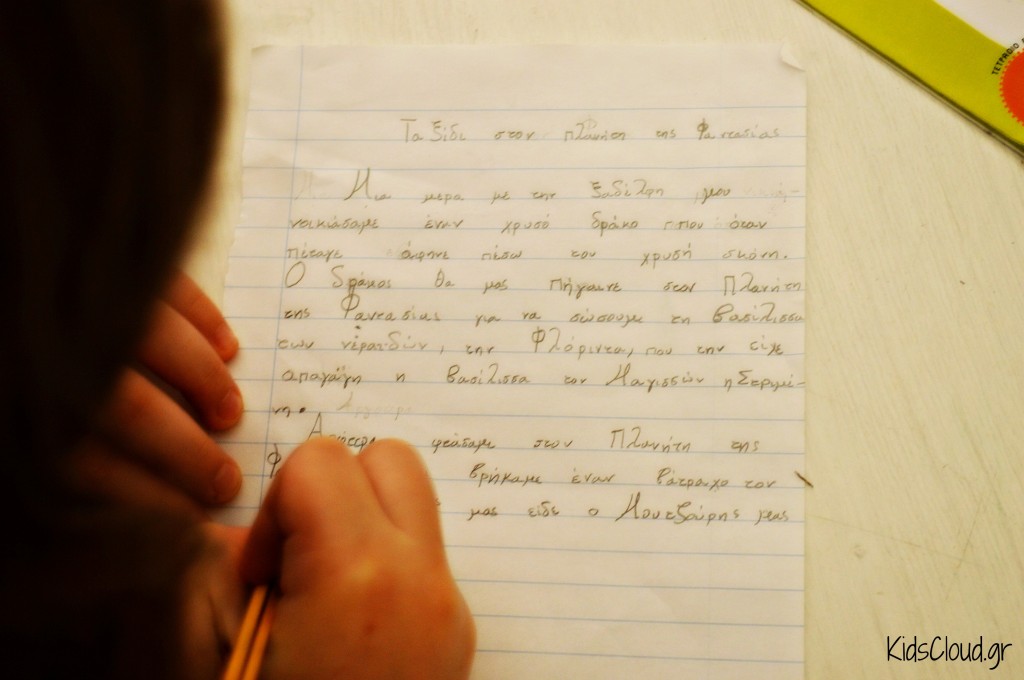 Ταξίδι στον πλανήτη της Φαντασίας
Μια μερα με την ξαδέλφη μου
νοικιάσαμε έναν χρυσό δράκο που όταν
πέταγε άφηνε πίσω του χρυσή σκόνη.
Ο δράκος θα μας πήγαινε στον Πλανήτη
της Φαντασίας για να σώσουμε τη βασίλισσα
των νεραϊδών, την Φλόριντα, που την είχε
απαγάγη η βασίλισσα των Μαγισσών η Σερμέ-
νη.
φτάσαμε στον Πλανήτη της
Φ βρήκαμε έναν βάτραχο τον
μας είδε ο Μουτζούρης μας
ΤΕΤΡΑΔΙΟ
KidsCloud.gr